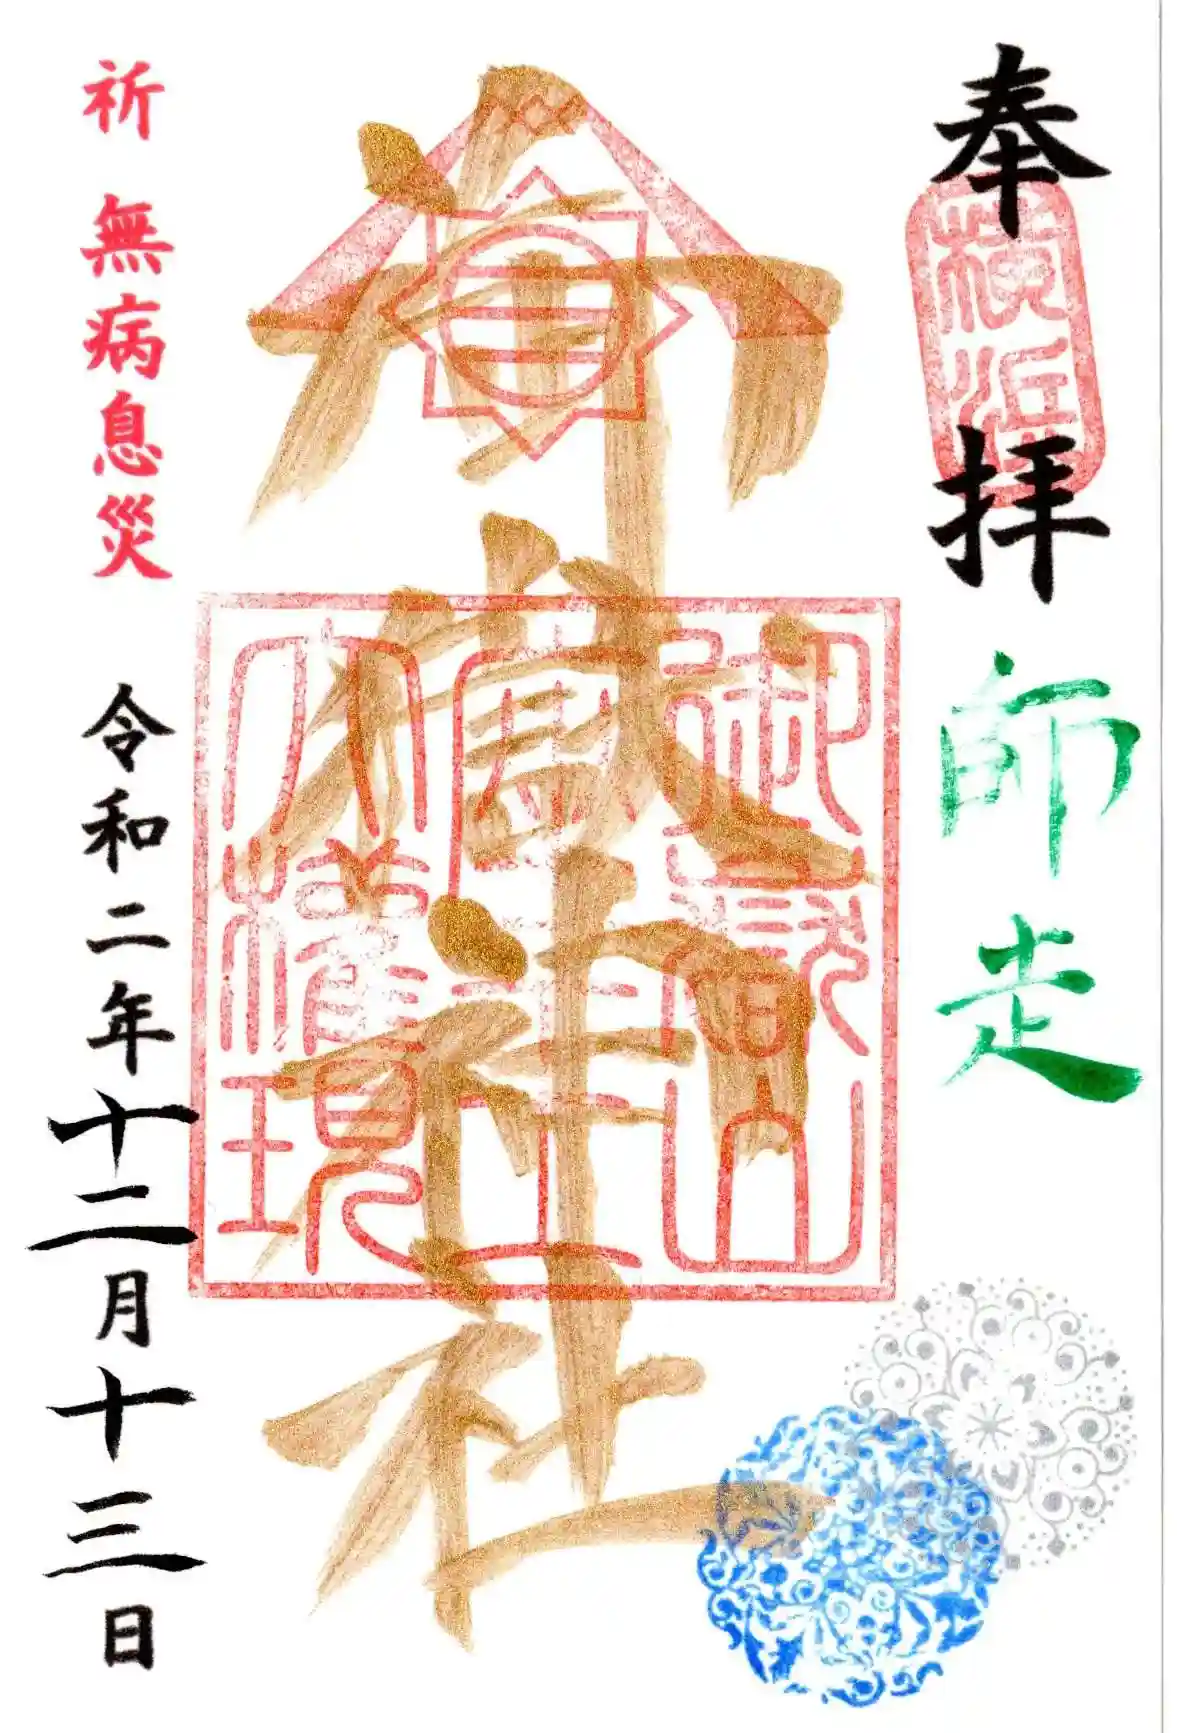 奉拝
師走
横浜
御嶽神社
御嶽山
大権現
祈 無病息災
令和二年十二月十三日